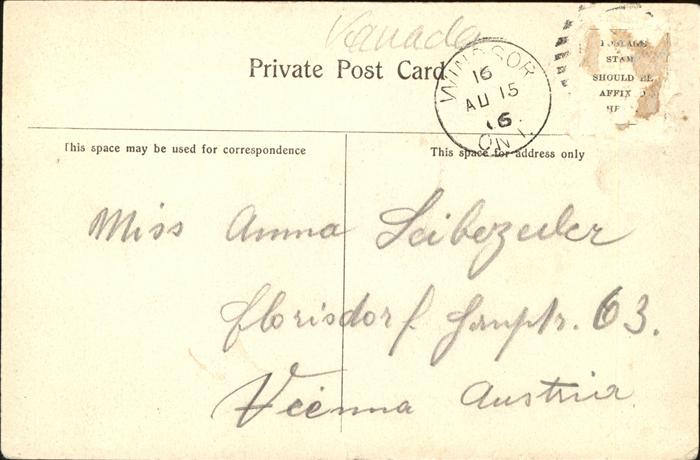 Kanada
Private Post Card
WINDSOR
16
AU 15
16
ONT.
POSTAGE
STAMP
SHOULD BE
AFFIXED
HERE
This space may be used for correspondence
This space for address only
Miss Anna
Florisdorf. Hauptr. 63.
Vienna Austria